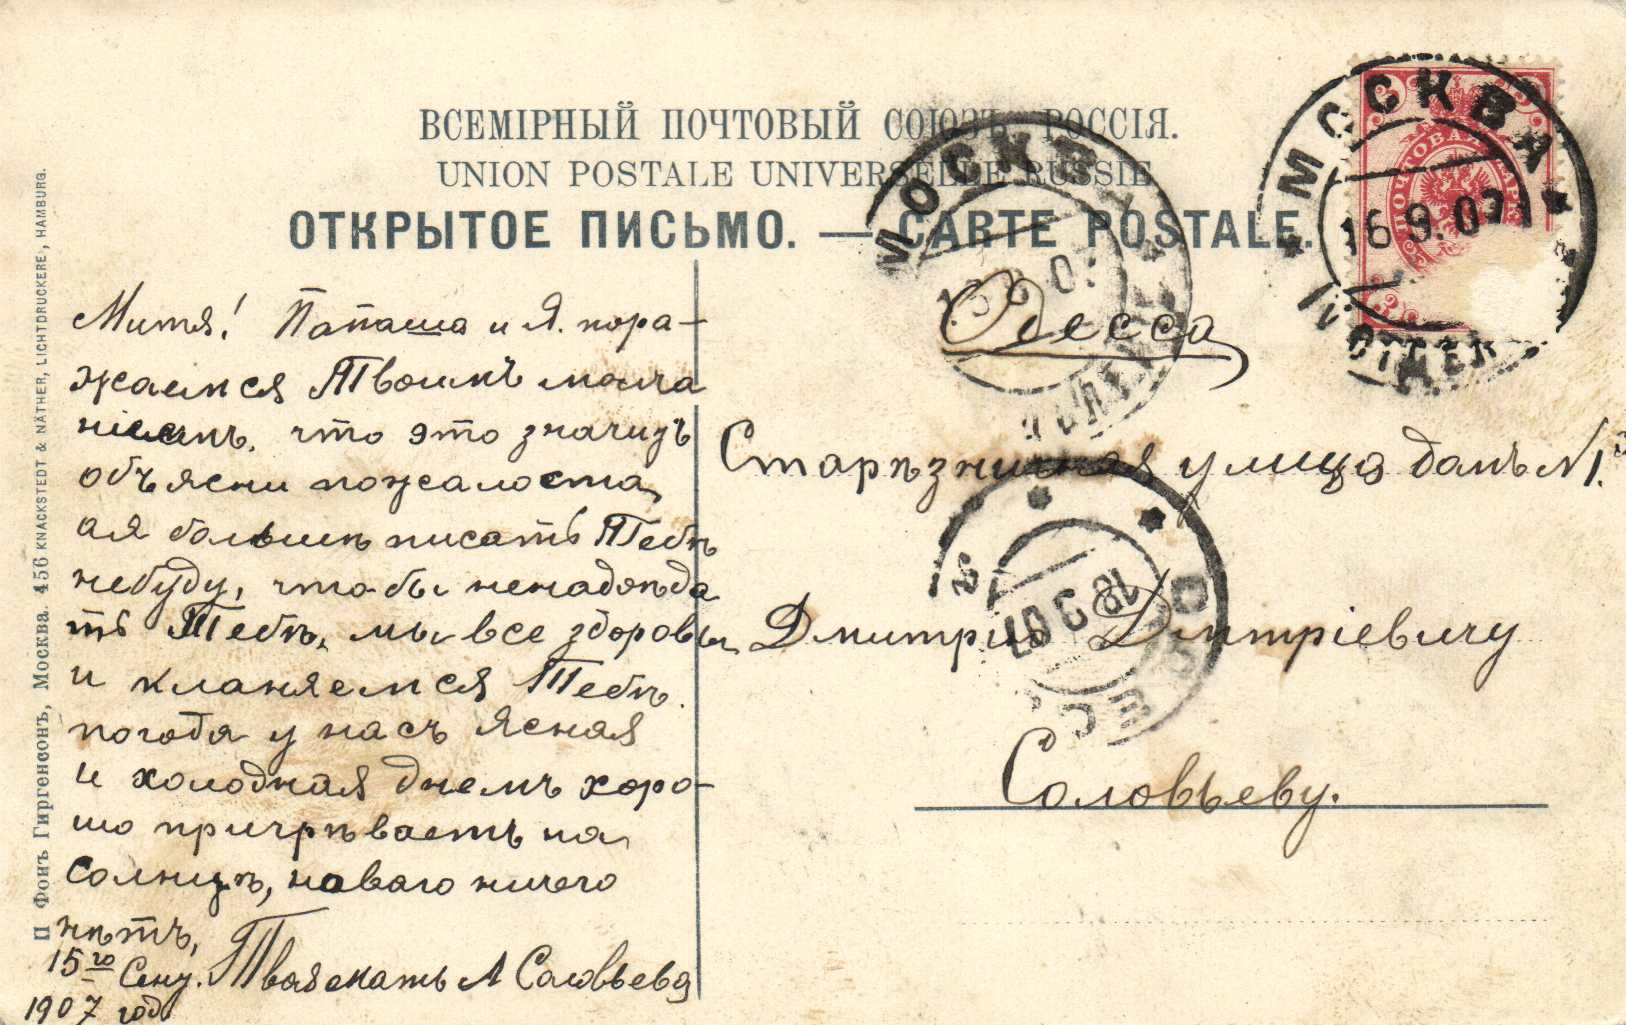 ВСЕМІРНЫЙ ПОЧТОВЫЙ СОЮЗЪ. РОССІЯ.
UNION POSTALE UNIVERSELLE RUSSIE
ОТКРЫТОЕ ПИСЬМО. — CARTE POSTALE.
П Фонъ Гиргенсонъ, Москва. 456 KNACKSTEDT & NÄTHER, LICHTDRUCKERE, HAMBURG.
Митя! Папаша и Я. пора-
жаемся Твоимъ молча
ніемъ. что это значитъ
объясни пожалоста,
ая больше писать Тебѣ
небуду, что бы ненадоѣда
ть Тебѣ, мы все здоровы
и кланяемся Тебѣ.
погода у насъ Ясная
и холодная днемъ хоро-
шо пригрѣваетъ на
Солнцѣ, новаго ничего
нѣтъ,
15го Сену. Твоя мать А Соловьева
1907 год
Одесса
Старѣзничная улица домъ N 1.й
Дмитрию Дмитріевичу
Соловьеву.
МОСКВА
16.9.07
ОТДЕЛ
МОСКВА
ОДЕССА
18 9 07
ПОЧТОВАЯ МАРКА
3
3